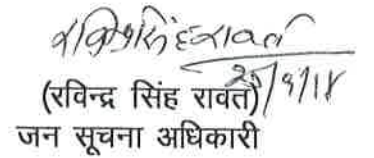 रविन्द्र सिंह रावत
(रविन्द्र सिंह रावत)
जन सूचना अधिकारी